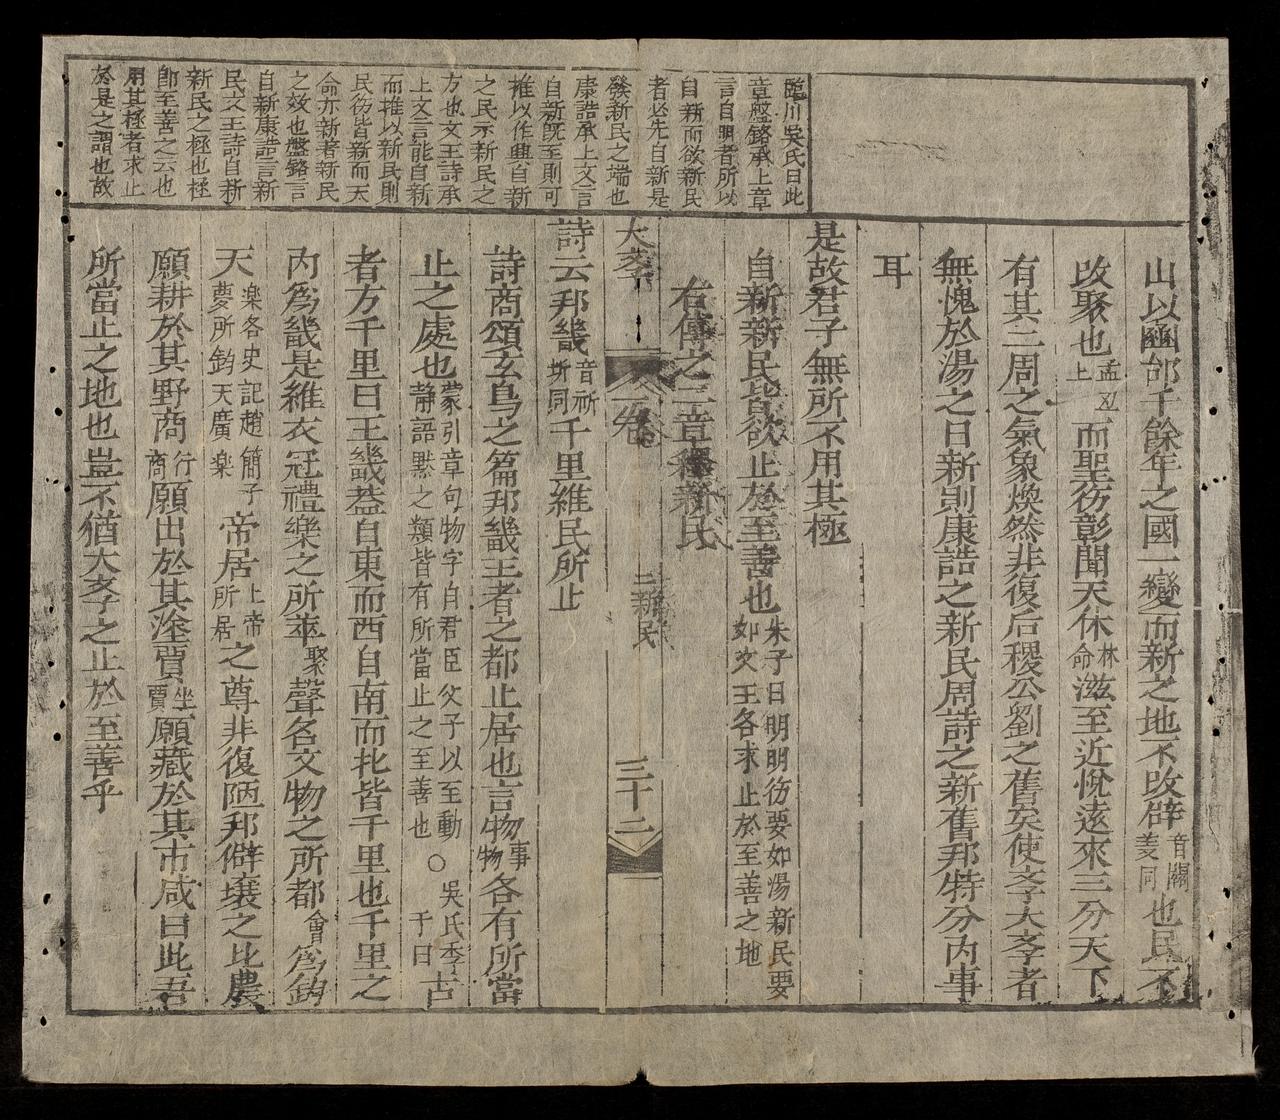 臨川吳氏曰此
章盤銘承上章
言自明者所以
自新而欲新民
者必先自新是
發新民之端也
康誥承上文言
自新旣至則可
推以作興自新
之民示新民之
方也文王詩承
上文言能自新
而推以新民則
民德皆新而天
命亦新著新民
之效也盤銘言
自新康誥言新
民文王詩自新
新民之極也極
即至善之云也
用其極者求止
於是之謂也故
山以豳邰千餘年之國一變而新之地不改辟音闢姜同也民不
改聚也孟丑上而聖德彰聞天休林命滋至近悅遠來三分天下
有其二周之氣象煥然非復后稷公劉之舊矣使斈大斈者
無愧於湯之日新則康誥之新民周詩之新舊邦特分內事
耳
是故君子無所不用其極
自新新民皆欲止於至善也朱子曰明明德要如湯新民要如文王各求止於至善之地
右傳之二章釋新民
大斈 卷 二新民 三十二
詩云邦畿音祈圻同千里維民所止
詩商頌玄鳥之篇邦畿王者之都止居也言物事物各有所當
止之處也蒙引章句物字自君臣父子以至動靜語默之類皆有所當止之至善也○吳氏季子曰古
者方千里曰王畿蓋自東而西自南而北皆千里也千里之
內爲畿是維衣冠禮樂之所萃聚聲名文物之所都會爲鈞
天楽名史記趙簡子夢所鈞天廣楽帝居上帝所居之尊非復陋邦僻壤之比農
願耕於其野商行商願出於其塗賈坐賈願藏於其市咸曰此吾
所當止之地也豈不猶大斈之止於至善乎